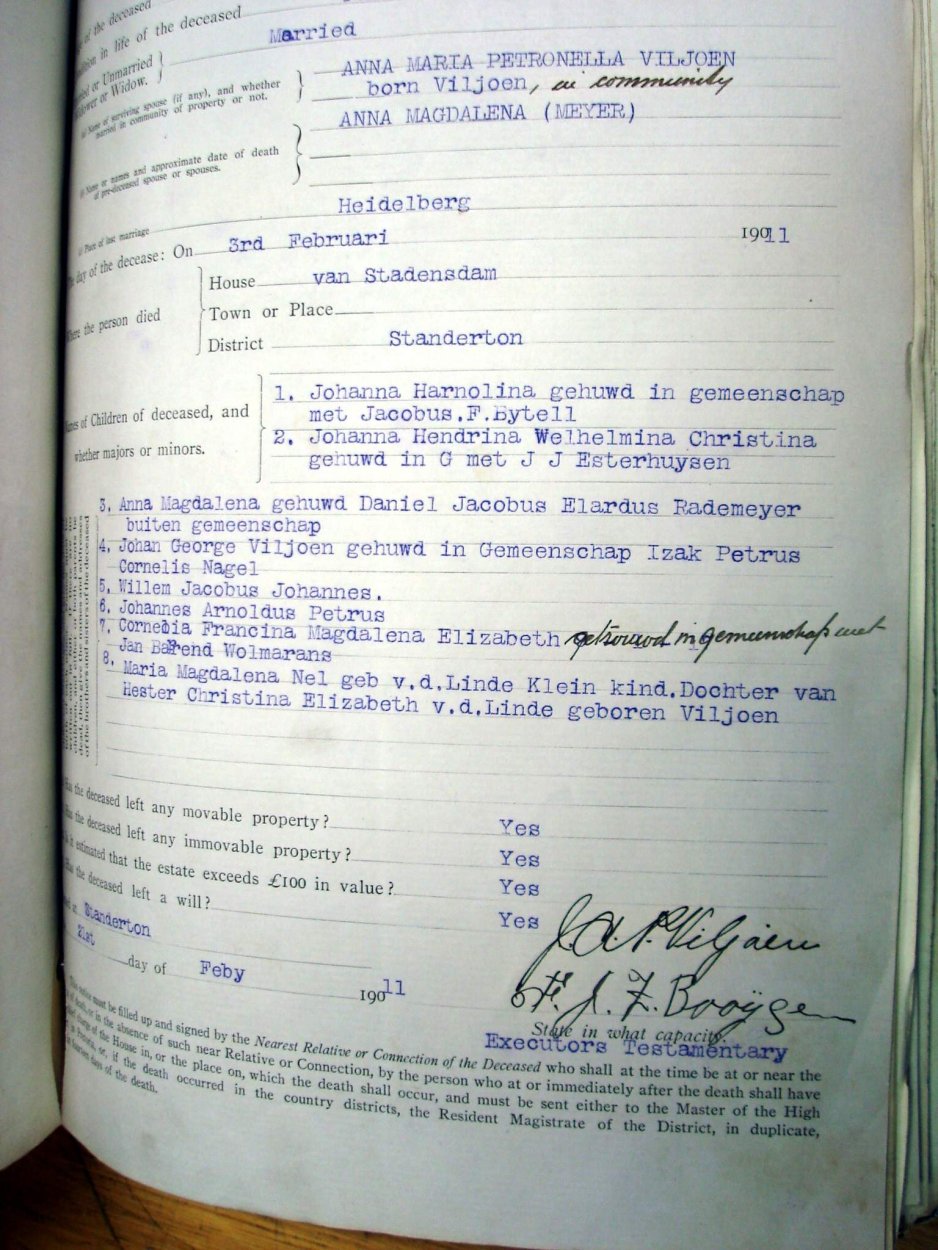 of the deceased
in life of the deceased
Married
or Unmarried
or Widow.
Name of surviving spouse (if any), and whether
married in community of property or not.
ANNA MARIA PETRONELLA VILJOEN
born Viljoen, in community
ANNA MAGDALENA (MEYER)
Name or names and approximate date of death
of pre-deceased spouse or spouses.
Place of last marriage
Heidelberg
day of the decease: On 3rd Februari 190 11
the person died
House van Stadensdam
Town or Place
District Standerton
of Children of deceased, and
whether majors or minors.
1. Johanna Harnolina gehuwd in gemeenschap
met Jacobus.F.Bytell
2. Johanna Hendrina Welhelmina Christina
gehuwd in G met J J Esterhuysen
3. Anna Magdalena gehuwd Daniel Jacobus Elardus Rademeyer
buiten gemeenschap
4. Johan George Viljoen gehuwd in Gemeenschap Izak Petrus
Cornelis Nagel
5. Willem Jacobus Johannes.
6. Johannes Arnoldus Petrus
7. Cornelia Francina Magdalena Elizabeth getrouwd in gemeenschap met
Jan Barend Wolmarans
8. Maria Magdalena Nel geb v.d.Linde Klein kind.Dochter van
Hester Christina Elizabeth v.d.Linde geboren Viljoen
of the brothers and sisters of the deceased
the deceased left any movable property? Yes
the deceased left any immovable property? Yes
estimated that the estate exceeds £100 in value? Yes
the deceased left a will? Yes
at Standerton
21st day of Feby 190 11
J.A.P. Viljoen
J. Z. Booÿsen
State in what capacity.
Executors Testamentary
notice must be filled up and signed by the Nearest Relative or Connection of the Deceased who shall at the time be at or near the
of death, or in the absence of such near Relative or Connection, by the person who at or immediately after the death shall have
charge of the House in, or the place on, which the death shall occur, and must be sent either to the Master of the High
or, if the death occurred in the country districts, the Resident Magistrate of the District, in duplicate,
days of the death.